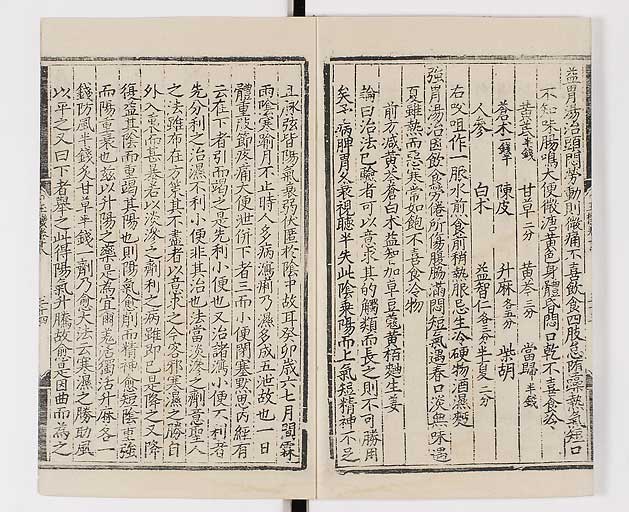 益胃湯治頭悶勞動則微痛不喜飲食四肢怠墮躁熱氣短口
不知味腸鳴大便微溏黃色身體昏悶口乾不喜食冷
黃芪半錢 甘草二分 黃芩三分 當歸半錢
蒼朮錢半 陳皮 升麻各五分 柴胡
人參 白朮 益智仁各三分 半夏二分
右㕮咀作一服水煎食前稍熱服忌生冷硬物酒濕麵
強胃湯治因飲食勞倦所傷腹脇滿悶短氣遇春口淡無味遇
夏雖熱而惡寒常如飽不喜食冷物
前方減黃芩蒼白朮益知加草豆蔻黃栢麴生姜
論曰治法已驗者可以意求其的觸類而長之則不可勝用
矣予病脾胃久衰視聽半失此陰乘陽而上氣短精神不足
且脉弦皆陽氣衰弱伏匿於陰中故耳癸卯歲六七月間霖
雨陰寒逾月不止時人多病瀉痢乃濕多成五泄故也一日
體重肢節疼痛大便泄併下者三而小便閉塞默思內經有
云在下者引而竭之是先利小便也又治諸瀉小便不利者
先分利之治濕不利小便非其治也法當淡滲之劑意聖人
之法雖布在方策其不盡者以意求之今客邪寒濕之勝自
外入裏而甚暴若以淡滲之劑利之病雖即已是降之又降
復益其陰而重竭其陽也則陽氣愈削而精神愈短陰重強
而陽重衰也茲以升陽之藥是為宜爾羌活獨活升麻各一
錢防風半錢炙甘草半錢一劑乃愈大法云寒濕之勝助風
以平之又曰下者舉之此得陽氣升騰故愈是因曲而為之